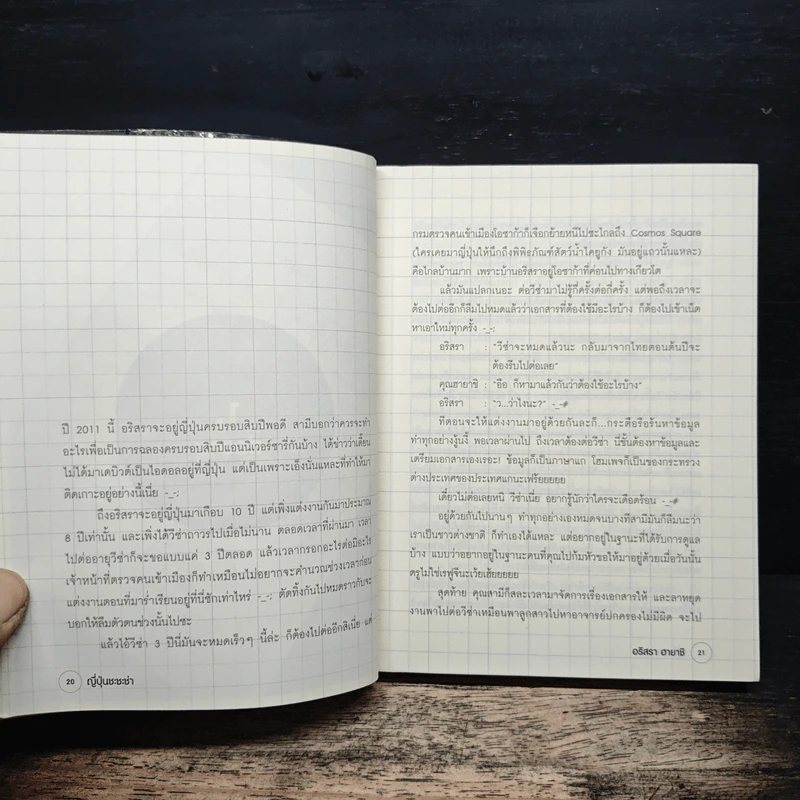 ปี 2011 นี้ อริสราจะอยู่ญี่ปุ่นครบรอบสิบปีพอดี สามีบอกว่าควรจะทำ
อะไรเพื่อเป็นการฉลองครบรอบสิบปีแอนนิเวอร์ซารี่กันบ้าง ได้ข่าวว่าเดี๊ยน
ไม่ได้มาเดบิวต์เป็นไอดอลอยู่ที่ญี่ปุ่น แต่เป็นเพราะเอ็งนั่นแหละที่ทำให้มา
ติดเกาะอยู่อย่างนี้เนี่ย -_-;
ถึงอริสราจะอยู่ญี่ปุ่นมาเกือบ 10 ปี แต่เพิ่งแต่งงานกันมาประมาณ
8 ปีเท่านั้น และเพิ่งได้วีซ่าถาวรไปเมื่อไม่นาน ตลอดเวลาที่ผ่านมา เวลา
ไปต่ออายุวีซ่าก็จะขอแบบแค่ 3 ปีตลอด แล้วเวลากรอกอะไรต่อมิอะไร
เจ้าหน้าที่ตรวจคนเข้าเมืองก็ทำเหมือนไม่อยากจะคำนวณช่วงเวลาก่อน
แต่งงานตอนที่มาร่ำเรียนอยู่ที่นี่ซักเท่าไหร่ -_-; ตัดทิ้งกันไปหมดราวกับจะ
บอกให้ลืมตัวตนช่วงนั้นไปซะ
แล้วไอ้วีซ่า 3 ปีนี่มันจะหมดเร็วๆ นี้ล่ะ ก็ต้องไปต่ออีกสิเนี่ย แต่
20 ญี่ปุ่นชะชะช่า
กรมตรวจคนเข้าเมืองโอซาก้าก็เจือกย้ายหนีไปซะไกลถึง Cosmos Square
(ใครเคยมาญี่ปุ่นให้นึกถึงพิพิธภัณฑ์สัตว์น้ำไคยูกัง มันอยู่แถวนั้นแหละ)
คือไกลบ้านมาก เพราะบ้านอริสราอยู่โอซาก้าที่ค่อนไปทางเกียวโต
แล้วมันแปลกเนอะ ต่อวีซ่ามาไม่รู้กี่ครั้งต่อกี่ครั้ง แต่พอถึงเวลาจะ
ต้องไปต่ออีกก็ลืมไปหมดแล้วว่าเอกสารที่ต้องใช้มีอะไรบ้าง ก็ต้องไปเข้าเน็ต
หาเอาใหม่ทุกครั้ง -_-;
อริสรา : "วีซ่าจะหมดแล้วนะ กลับมาจากไทยตอนต้นปีจะ
ต้องรีบไปต่อเลย"
คุณฮายาชิ : "อือ ก็หามาแล้วกันว่าต้องใช้อะไรบ้าง"
อริสรา : "ว...ว่าไงนะ?" -_-#
ทีตอนจะให้แต่งงานมาอยู่ด้วยกันละก็...กระดือรือร้นหาข้อมูล
ทำทุกอย่างงู้นงี้ พอเวลาผ่านไป ถึงเวลาต้องต่อวีซ่า นี่ชั้นต้องหาข้อมูลและ
เตรียมเอกสารเองเรอะ! ข้อมูลก็เป็นภาษาแก โฮมเพจก็เป็นของกระทรวง
ต่างประเทศของประเทศแกนะเฟร้ยยยยย
เดี๋ยวไม่ต่อเลยหนิ วีซ่าเนี่ย อยากรู้นักว่าใครจะเดือดร้อน -_-#
อยู่ด้วยกันไปนานๆ ทำทุกอย่างเองหมดจนบางทีสามีมันก็ลืมนะว่า
เราเป็นชาวต่างชาติ ก็ทำเองได้แหละ แต่อยากอยู่ในฐานะที่ได้รับการดูแล
บ้าง แบบว่าอยากอยู่ในฐานะคนที่คุณไปก้มหัวขอให้มาอยู่ด้วยเมื่อวันนั้น
ตรูไม่ใช่เรฟูจีนะเว้ยเฮ้ยยยยย
สุดท้าย คุณสามีก็สละเวลามาจัดการเรื่องเอกสารให้ และลาหยุด
งานพาไปต่อวีซ่าเหมือนพาลูกสาวไปหาอาจารย์ปกครองไม่มีผิด จะไป
อริสรา ฮายาชิ 21